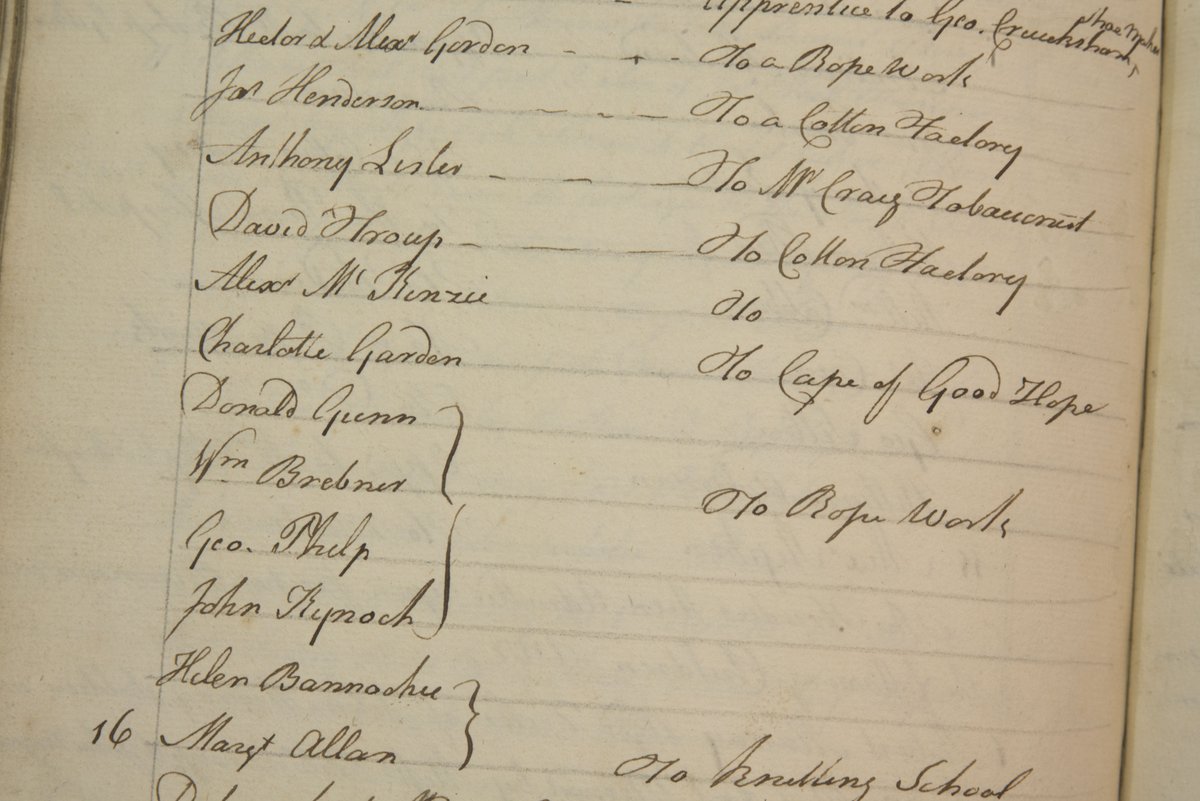 Apprentice to Geo. Cruickshank, Shoe Maker
Hector & Alexr Gordon - - - To a Rope Work
Jas Henderson - - - - To a Cotton Factory
Anthony Lister - - - To Mr Craig Tobacconist
David Troup - - - To Cotton Factory
Alexr Mc Kenzie To
Charlotte Garden To Cape of Good Hope
Donald Gunn
Wm Brebner
To Rope Work
Geo. Philp
John Kynoch
Helen Bannochie
16 Margt Allan
To Knitting School